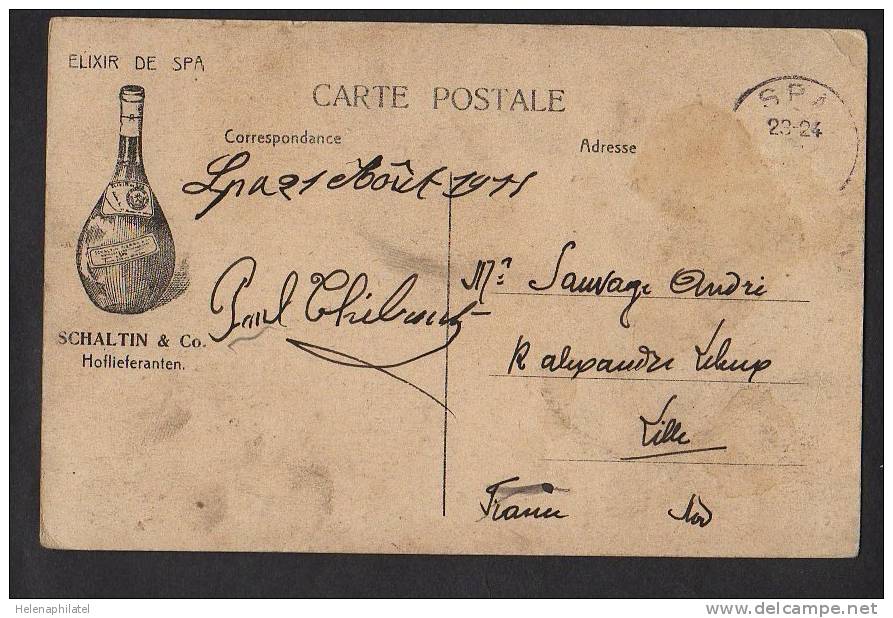 ELIXIR DE SPA
CARTE POSTALE
Correspondance
Adresse
SPA
23-24
Spa 21 Août 1911
Paul Thibaut
Mr Sauvage André
R alexandre Leleux
Lille
France Nord
SCHALTIN & Co.
Hoflieferanten.
Helenaphilatel
www.delcampe.net